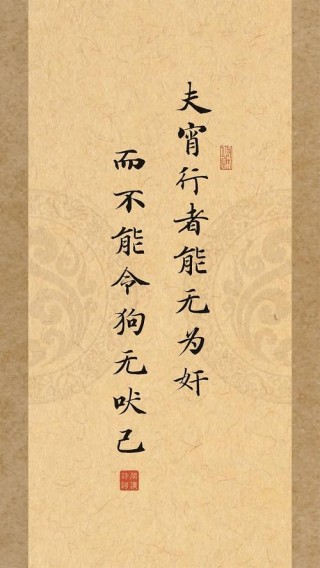 夫宵行者能无为奸
而不能令狗无吠己